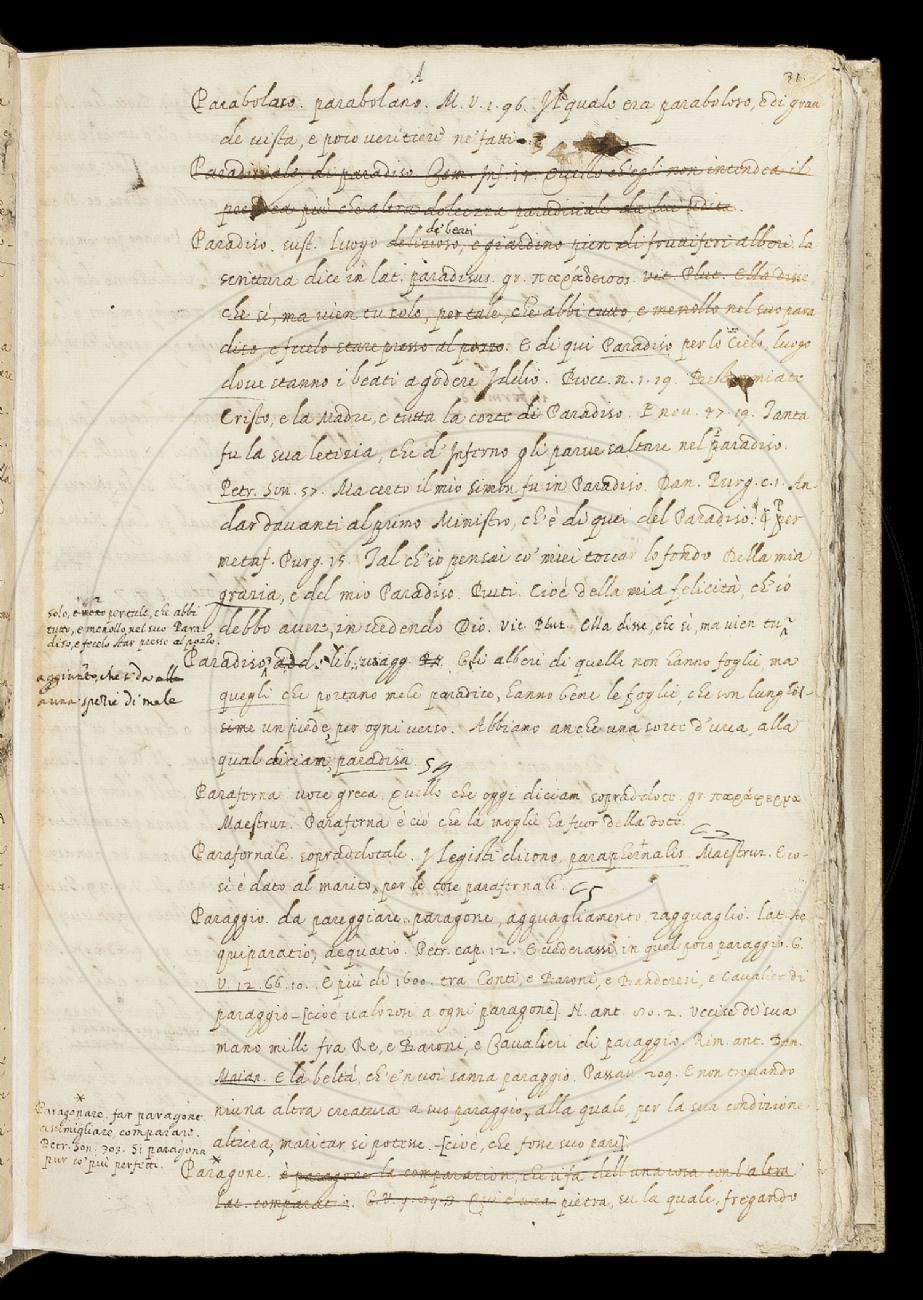 A
31
Parabolaro. parabolano. M. V. 1. 96. Il quale era paraboloso, e di gran
de vista, e poco veritiere ne' fatti.
Paradisiale. di paradiso Com. Inf. 14. Quello ch'egli non intendea il
poe più che altra dolcezza paradisiale da lui udita.
de' beati
Paradiso. sust. luogo delizioso, e giardino pien di fruttiferi alberi. la
scrittura dice in lat. paradisus. gr. παράδεισος. Vit. Plut. Ella disse
che sì, ma vien tu solo, per tale, che abbi tutto, e menollo nel suo para
diso, e fecelo stare presso al pozzo. E di qui Paradiso per lo Cielo, luogo
dove stanno i beati a godere Iddio. Bocc. n. 1. 19.
Cristo, e la Madre, e tutta la corte di Paradiso. E nou. 47. 19. Tanta
fu la sua letizia, che d'Inferno gli parve saltare nel paradiso.
Petr. Son. 57. Ma certo il mio Simon fu in Paradiso. Dan. Purg. c. 1. An
dar davanti al primo Ministro, ch'è di quei del Paradiso. per
metaf. Purg. 15. Tal ch'io pensai co' miei toccar lo fondo Della mia
grazia, e del mio Paradiso. Buti. Cioè della mia felicità, ch'io
debbo avere, in vedendo Dio. Vit. Plut. Ella disse, che sì, ma vien tu
solo, per tale, che abbi
tutto, e menollo nel suo Para
diso, e fecelo star presso al pozzo.
Paradiso, add. lib. viagg. Gli alberi di quelle non hanno foglie, ma
aggiunto, che si dà
a una spezie di mele
quegli che portano mele paradiso, hanno bene le foglie, che son lunghis-
sime un piede, per ogni verso. Abbiamo anche una sorte d'uva, alla
qual diciam, paradisa.
Paraferna voce greca. Quello che oggi diciam sopraddote. gr. παράφερνα
Maestruz. Paraferna è ciò che la moglie ha fuor della dote.
Parafernale. sopraddotale. I legisti dicono, paraphernalis. Maestruz. E co-
sì è dato al marito, per le cose parafernali.
Paraggio. da pareggiare. paragone, agguagliamento, ragguaglio. Lat. Ae
quiparatio, aequatio. Petr. cap. 12. E vederassi in quel poco paraggio. G.
V. 12. 66. 10. E più di 1600. tra Conti, e Baroni, e Banderesi, e Cavalier di
paraggio [cioè valorosi a ogni paragone] N. ant. 20. 2. Uccise di sua
mano mille fra Re, e Baroni, e Cavalieri di paraggio. Rim. ant. Dan.
Maian. E la beltà, ch'è 'n voi sanza paraggio. Passav. 209. E non trovando
niuna altra creatura a suo paraggio, alla quale, per la sua condizione
altiera, maritar si potesse. [cioè, che fosse suo pare]
Paragonare. far paragone
assimigliare, comparare.
Petr. Son. 303. Si paragona
pur co' più perfetti.
Paragone. è paragone la comparazion, che si fa dell'una cosa con l'altra
lat. comparatio. Qui è una pietra, su la quale, fregando